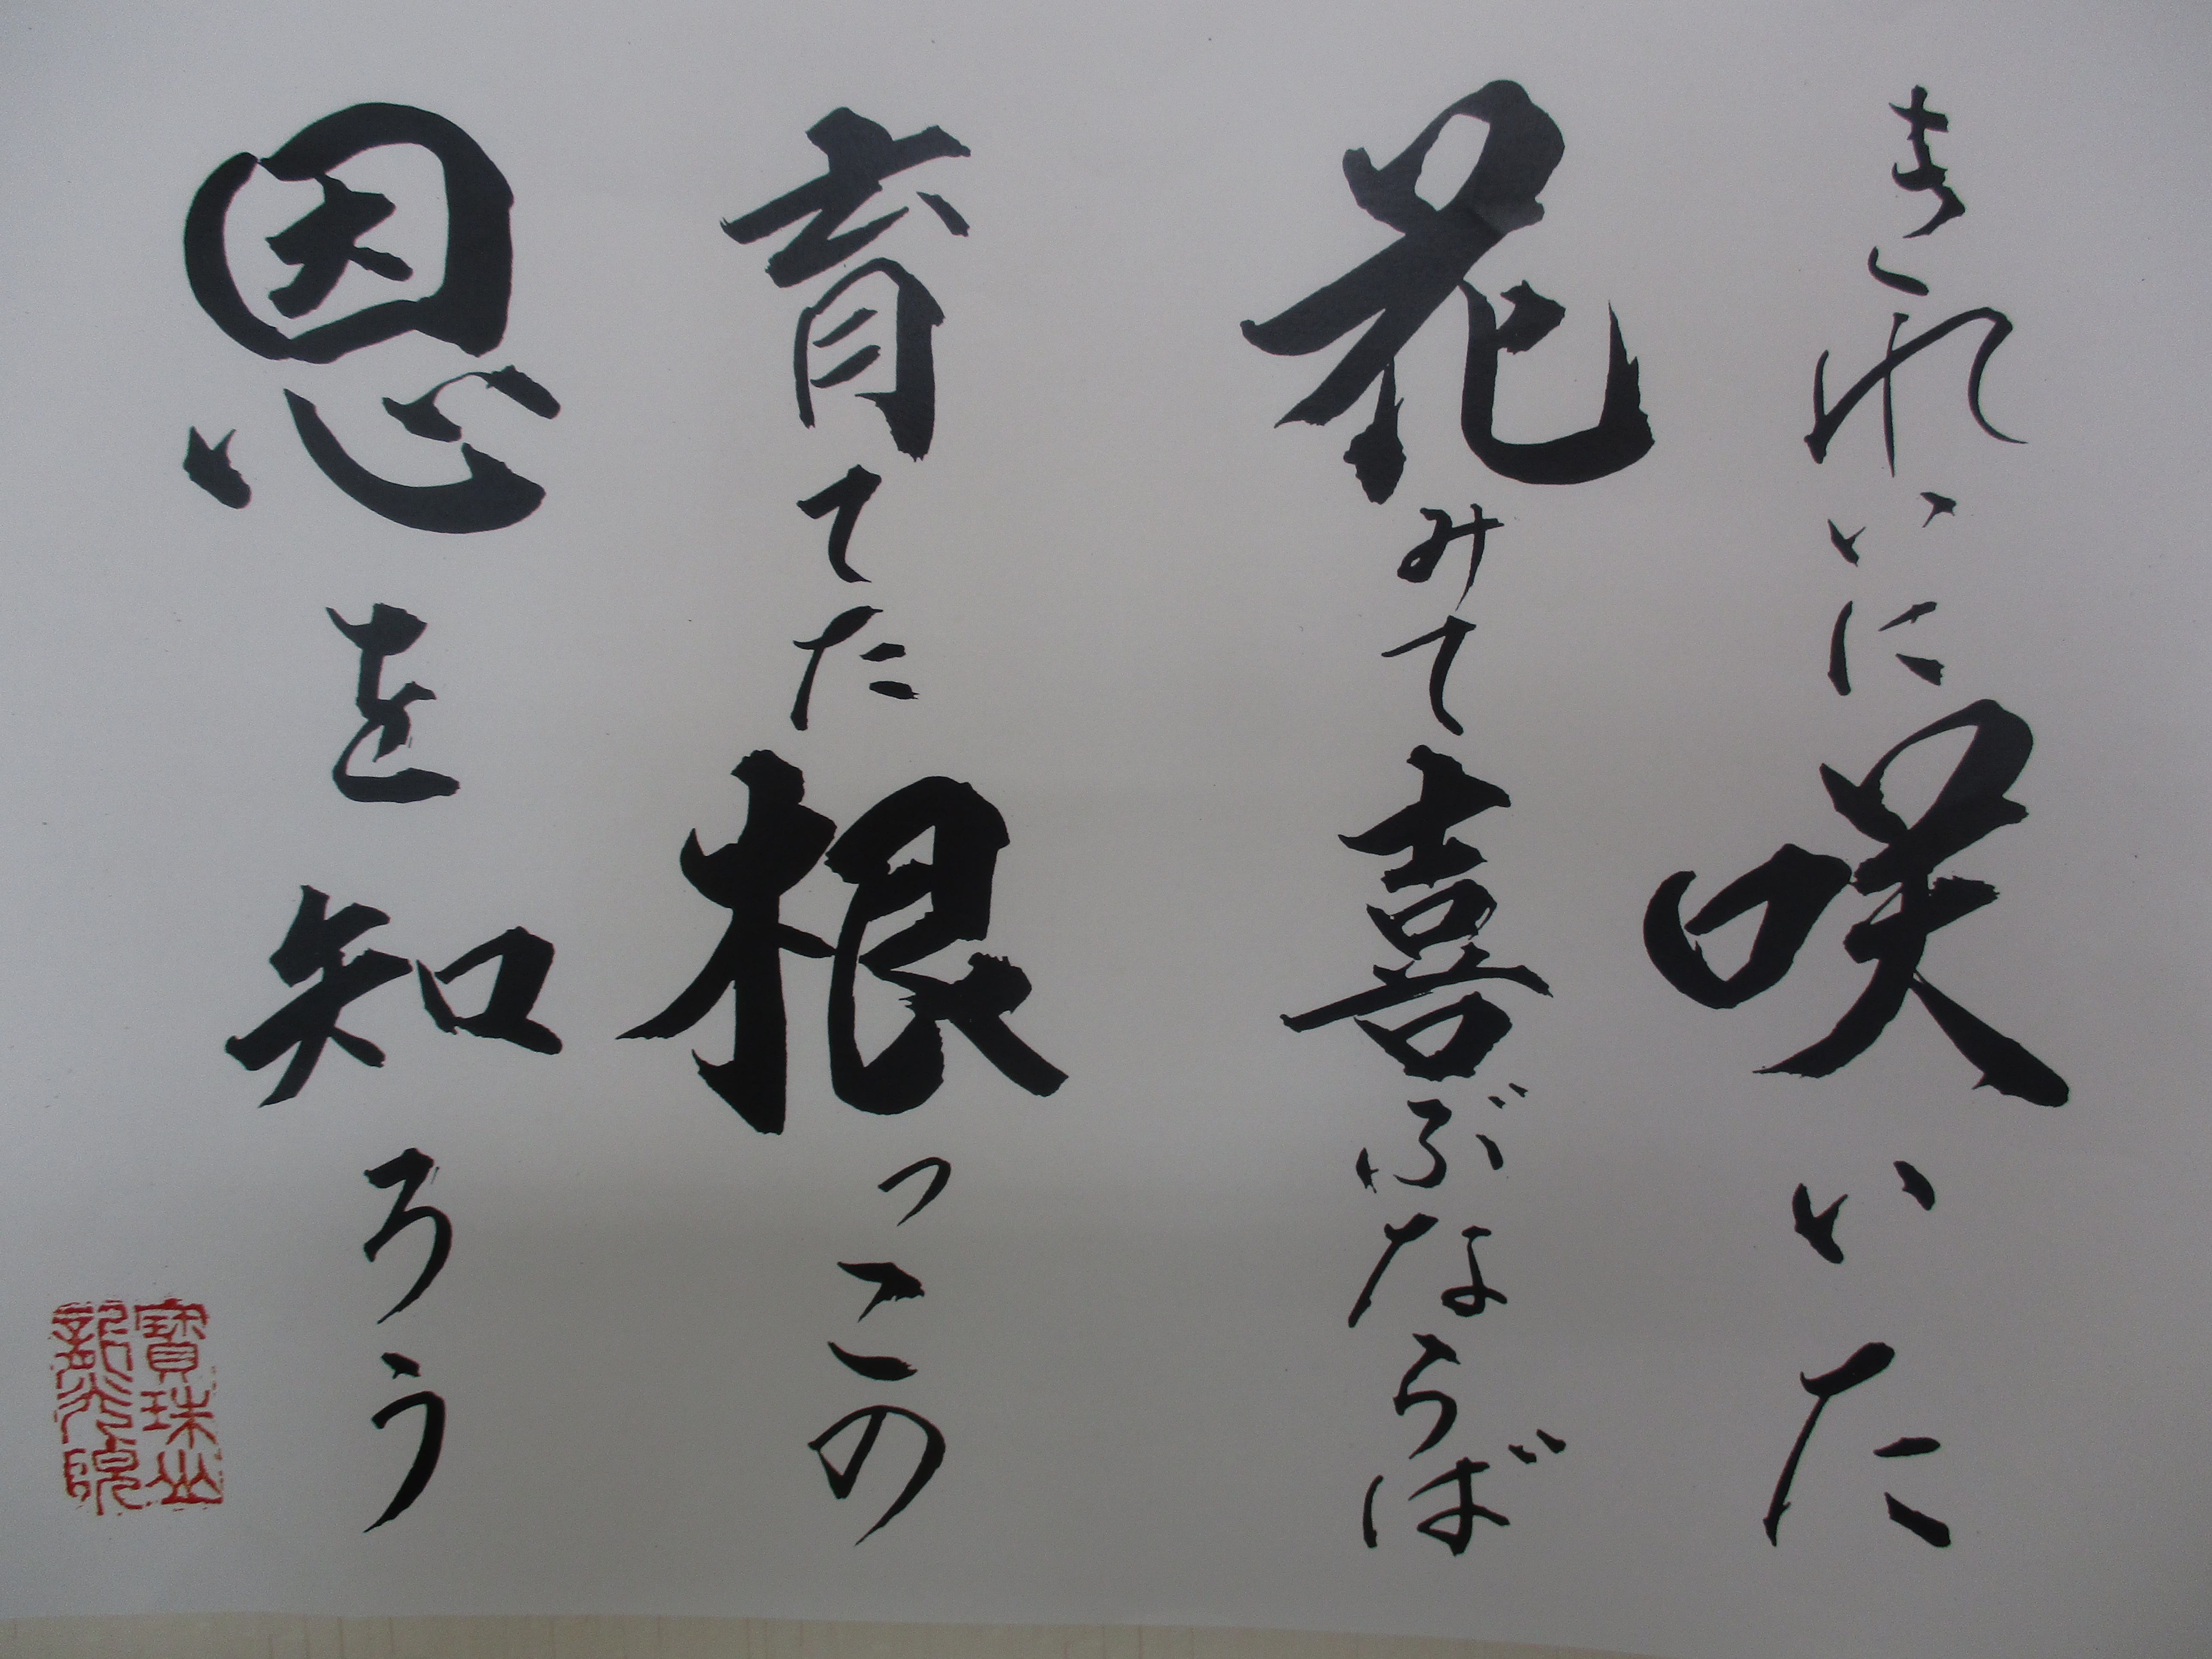 きれいに咲いた
花みて喜ぶならば
育てた根っこの
恩を知ろう
寳珠山
龍光院